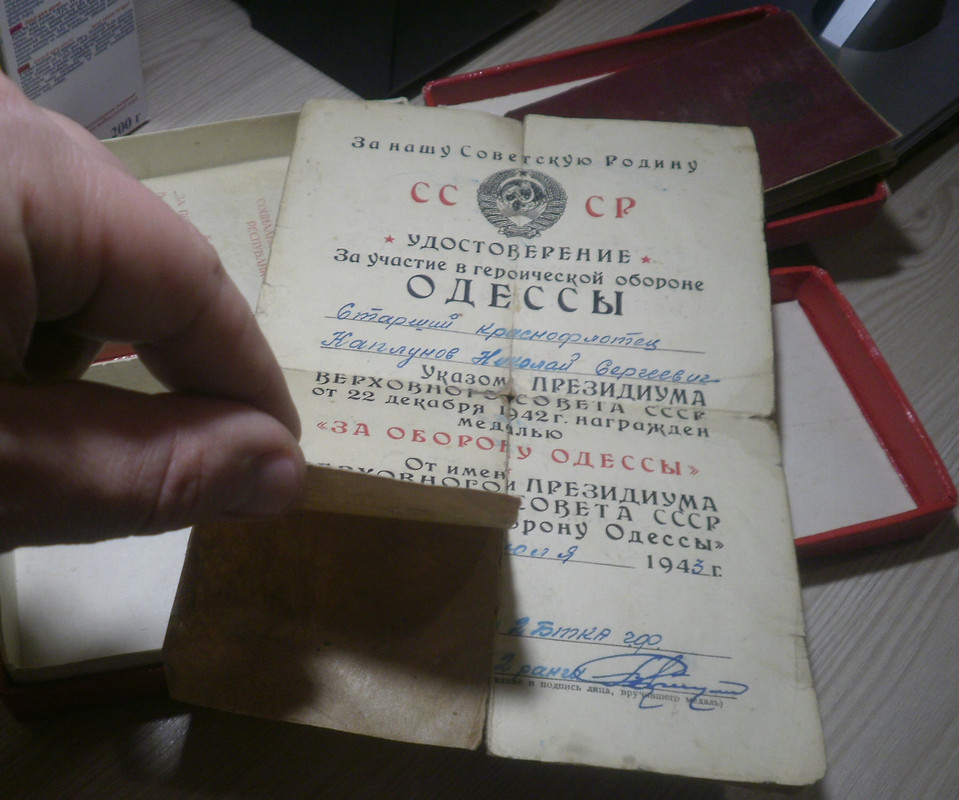 200 г
За нашу Советскую Родину
СС СР
УДОСТОВЕРЕНИЕ
За участие в героической обороне
ОДЕССЫ
Старший краснофлотец
Каплунов Николай Сергеевич
Указом ПРЕЗИДИУМА
ВЕРХОВНОГО СОВЕТА СССР
от 22 декабря 1942 г. награжден
медалью
«ЗА ОБОРОНУ ОДЕССЫ»
От имени ПРЕЗИДИУМА
ЕРХОВНОГО
СОВЕТА СССР
орону Одессы»
юля 1943 г.
2 БТКА ЧФ
2 ранга
и подпись лица, вручившего медаль)